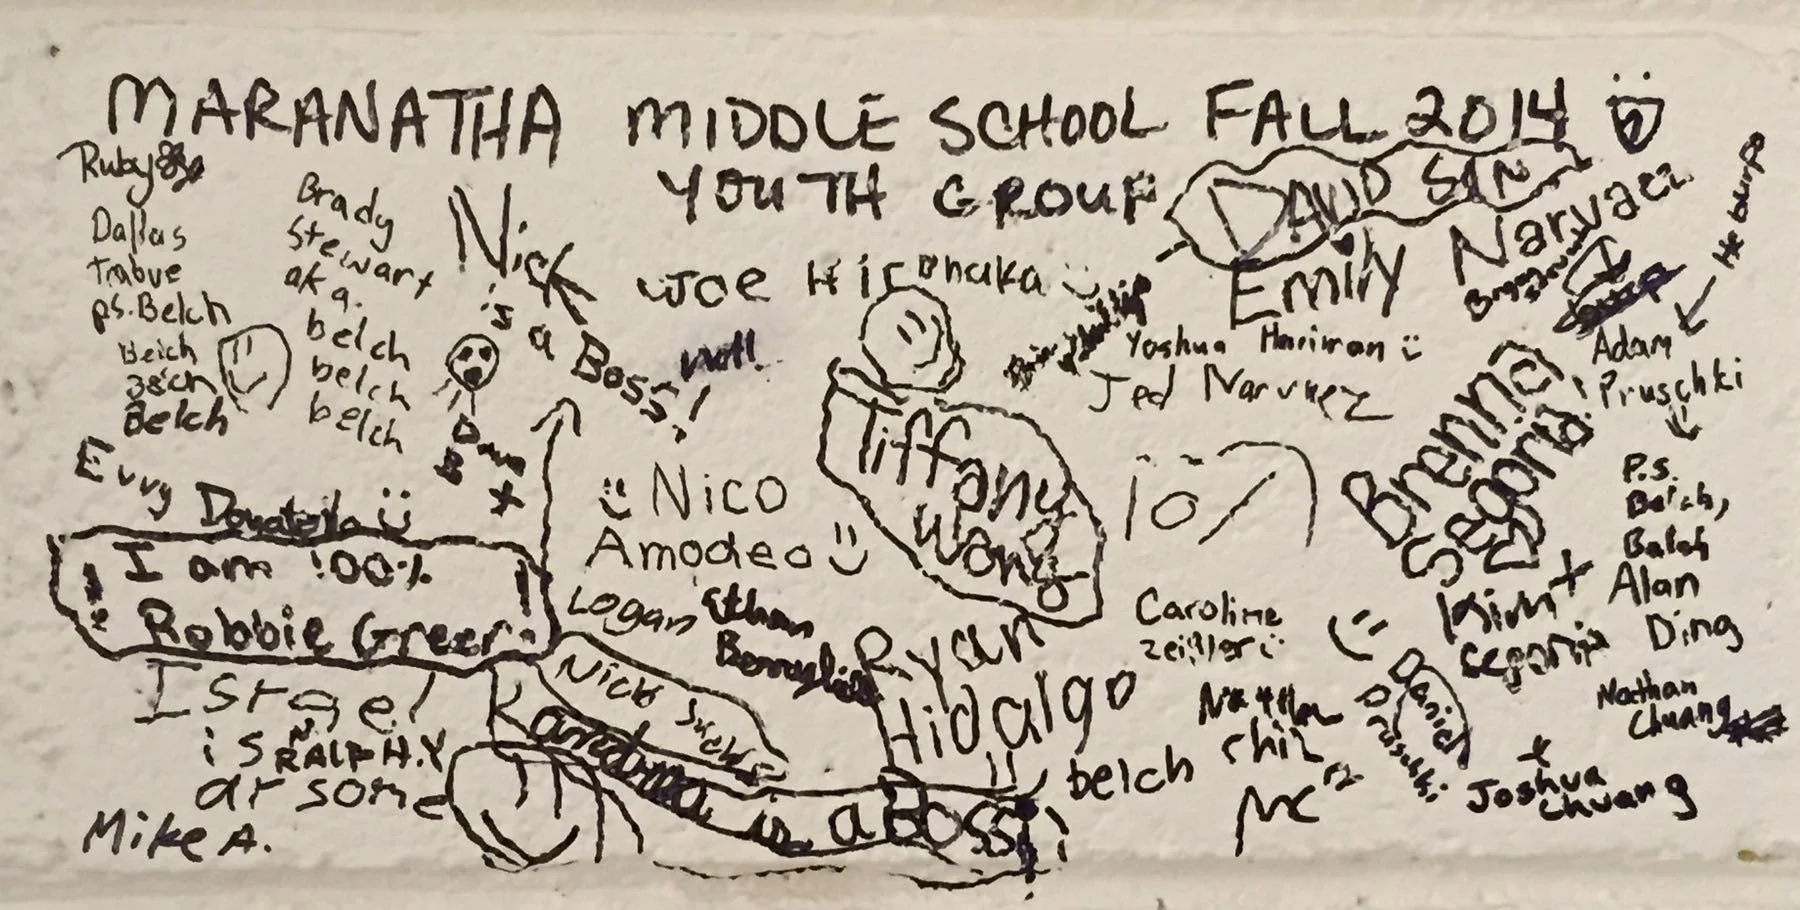 MARANATHA MIDDLE SCHOOL FALL 2014
YOUTH GROUP
Ruby
Dallas
trabue
ps. Belch
Belch
Belch
Belch
Brady
Stewart
aka.
belch
belch
belch
Nick
is
a Boss!
Dave
B
Joe
null
DAVID SUN
Emily Narvaez
Yoshua Hariman
Jed Narvaez
He burps
Adam
Pruschki
P.S.
Belch,
Balch
Alan
Ding
Brenna
Segoria!
Kim
Segoria
Tiffany
Wong
Evvy
Nico
Amodeo
I am 100%
Robbie Greer
Logan
Ethan
Ryan
Hidalgo
Caroline
Zeissler
Nick sucks
Israel
is RALPH.Y
ar some
Mike A.
is a Boss!
belch
MC
Nathan
Chuang
Joshua
Chuang